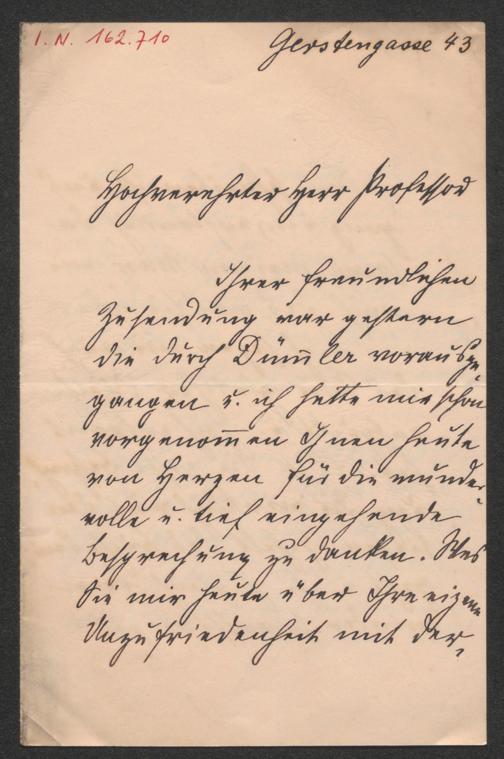 I. N. 162.710
Gerstengasse 43
Hochverehrter Herr Professor
Ihrer freundlichen
Zusendung war gestern
die durch Düm̄ler vorausge-
gangen u. ich hatte mir schon
vorgenom̄en Ihnen heute
von Herzen für die wunder-
volle u. tief eingehende
Besprechung zu danken. Was
Sie mir heute über Ihre eigene
Unzufriedenheit mit der-